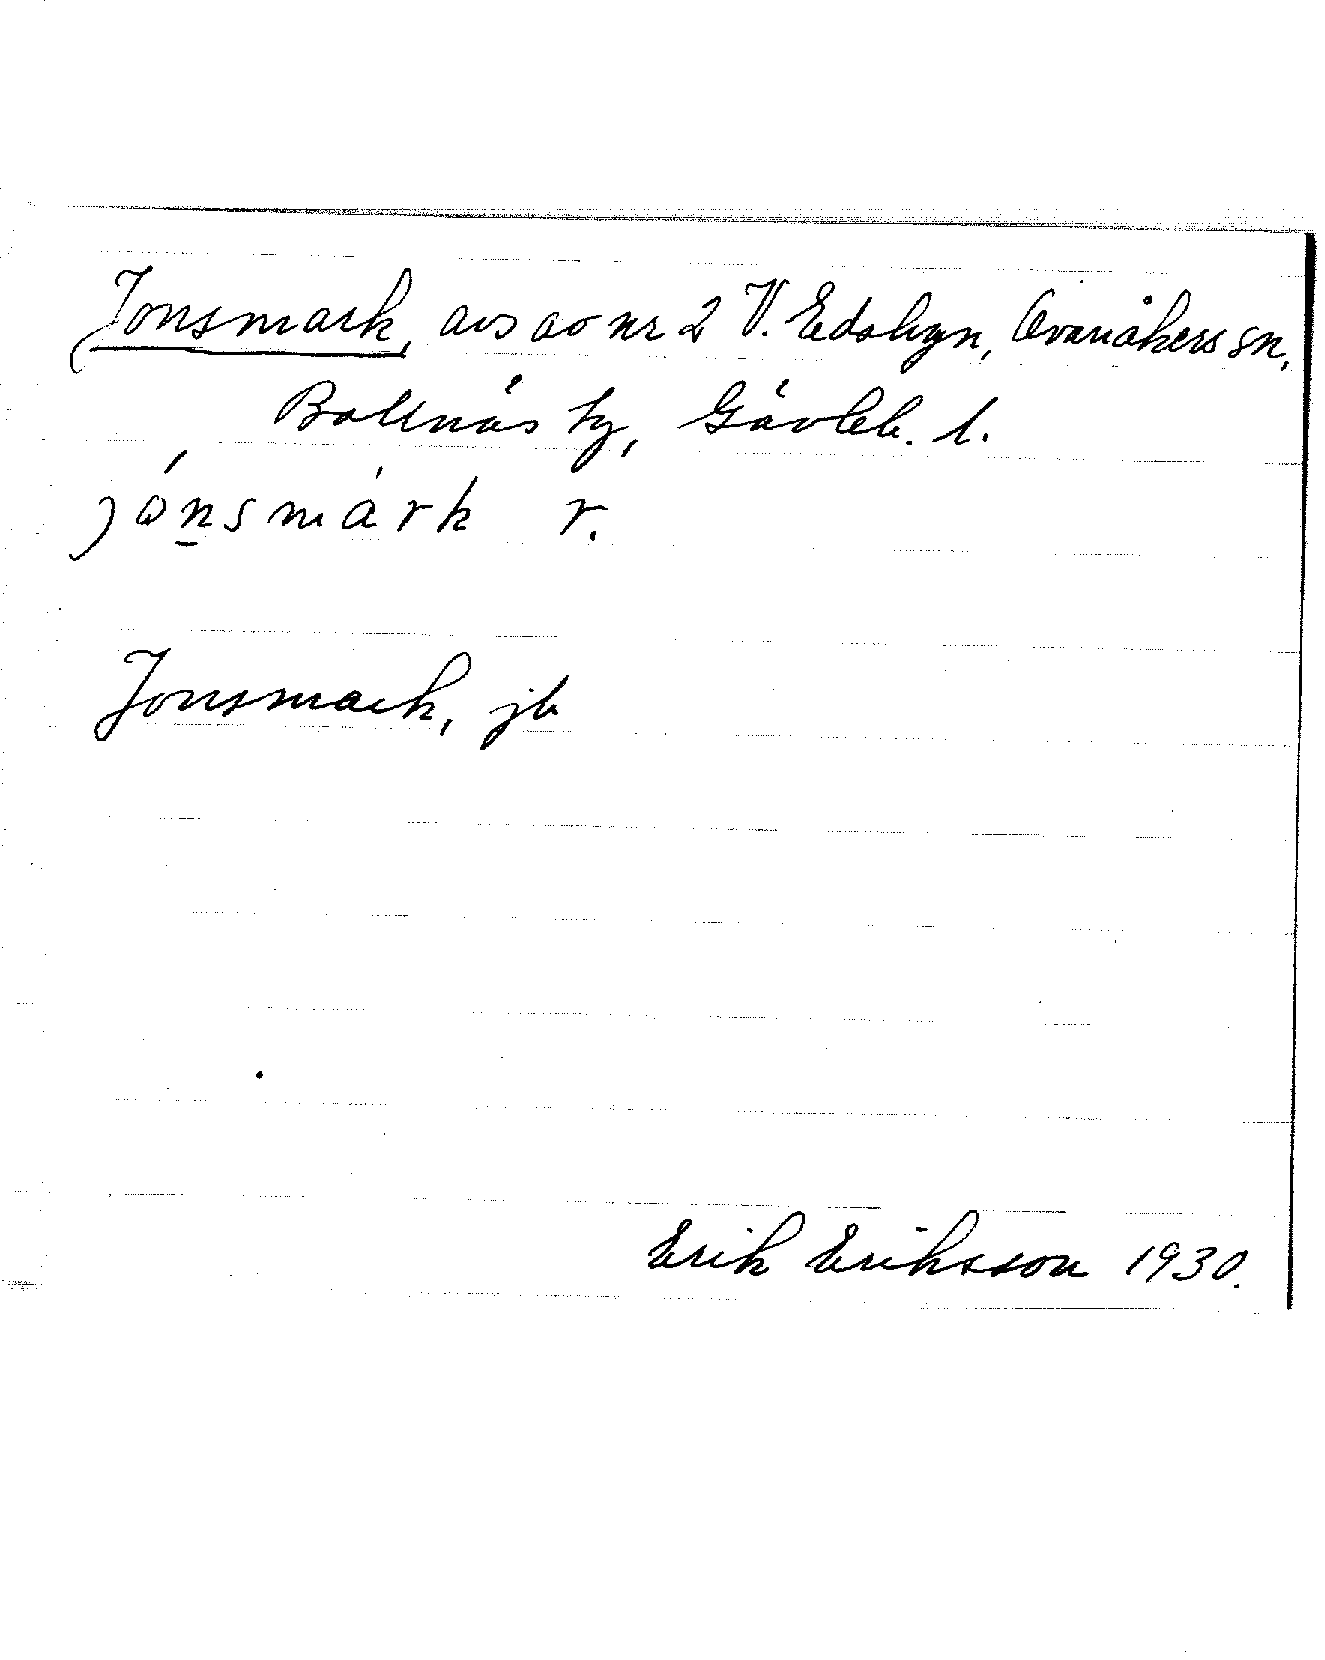 Jonsmark, avs av nr 2 V. Edsbyn, Ovanåkers sn,
Bollnäs tg, Gävleb. l.
jónsmàrk r.
Jonsmark, jb
Erik Eriksson 1930.